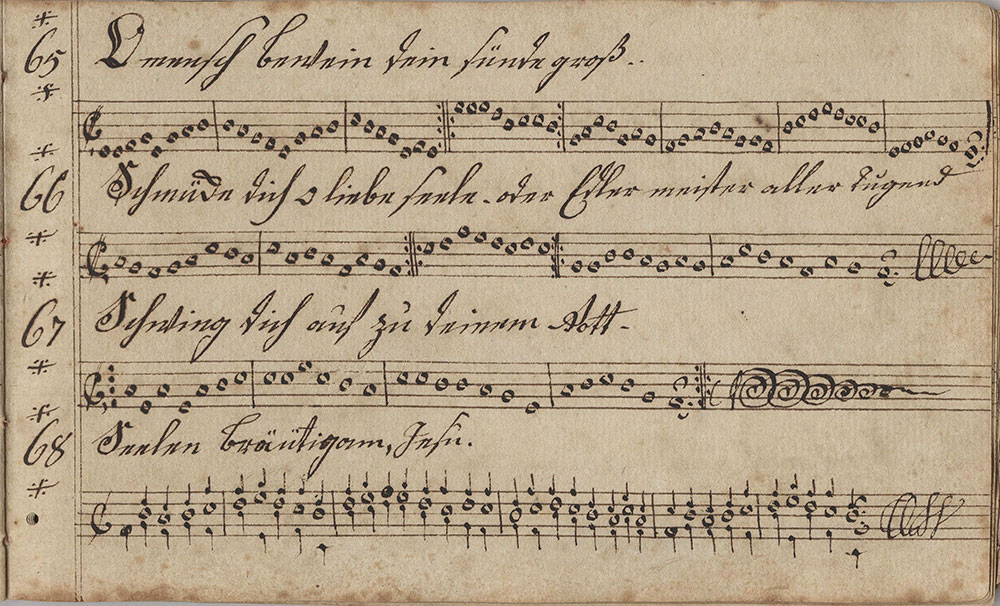 65 O mensch bewein dein sünde groß.
66 Schmüke dich o liebe seele. oder Edler meister aller tugend
67 Schwing dich auf zu deinem Gott.
68 Seelen bräütigam, Jesu.